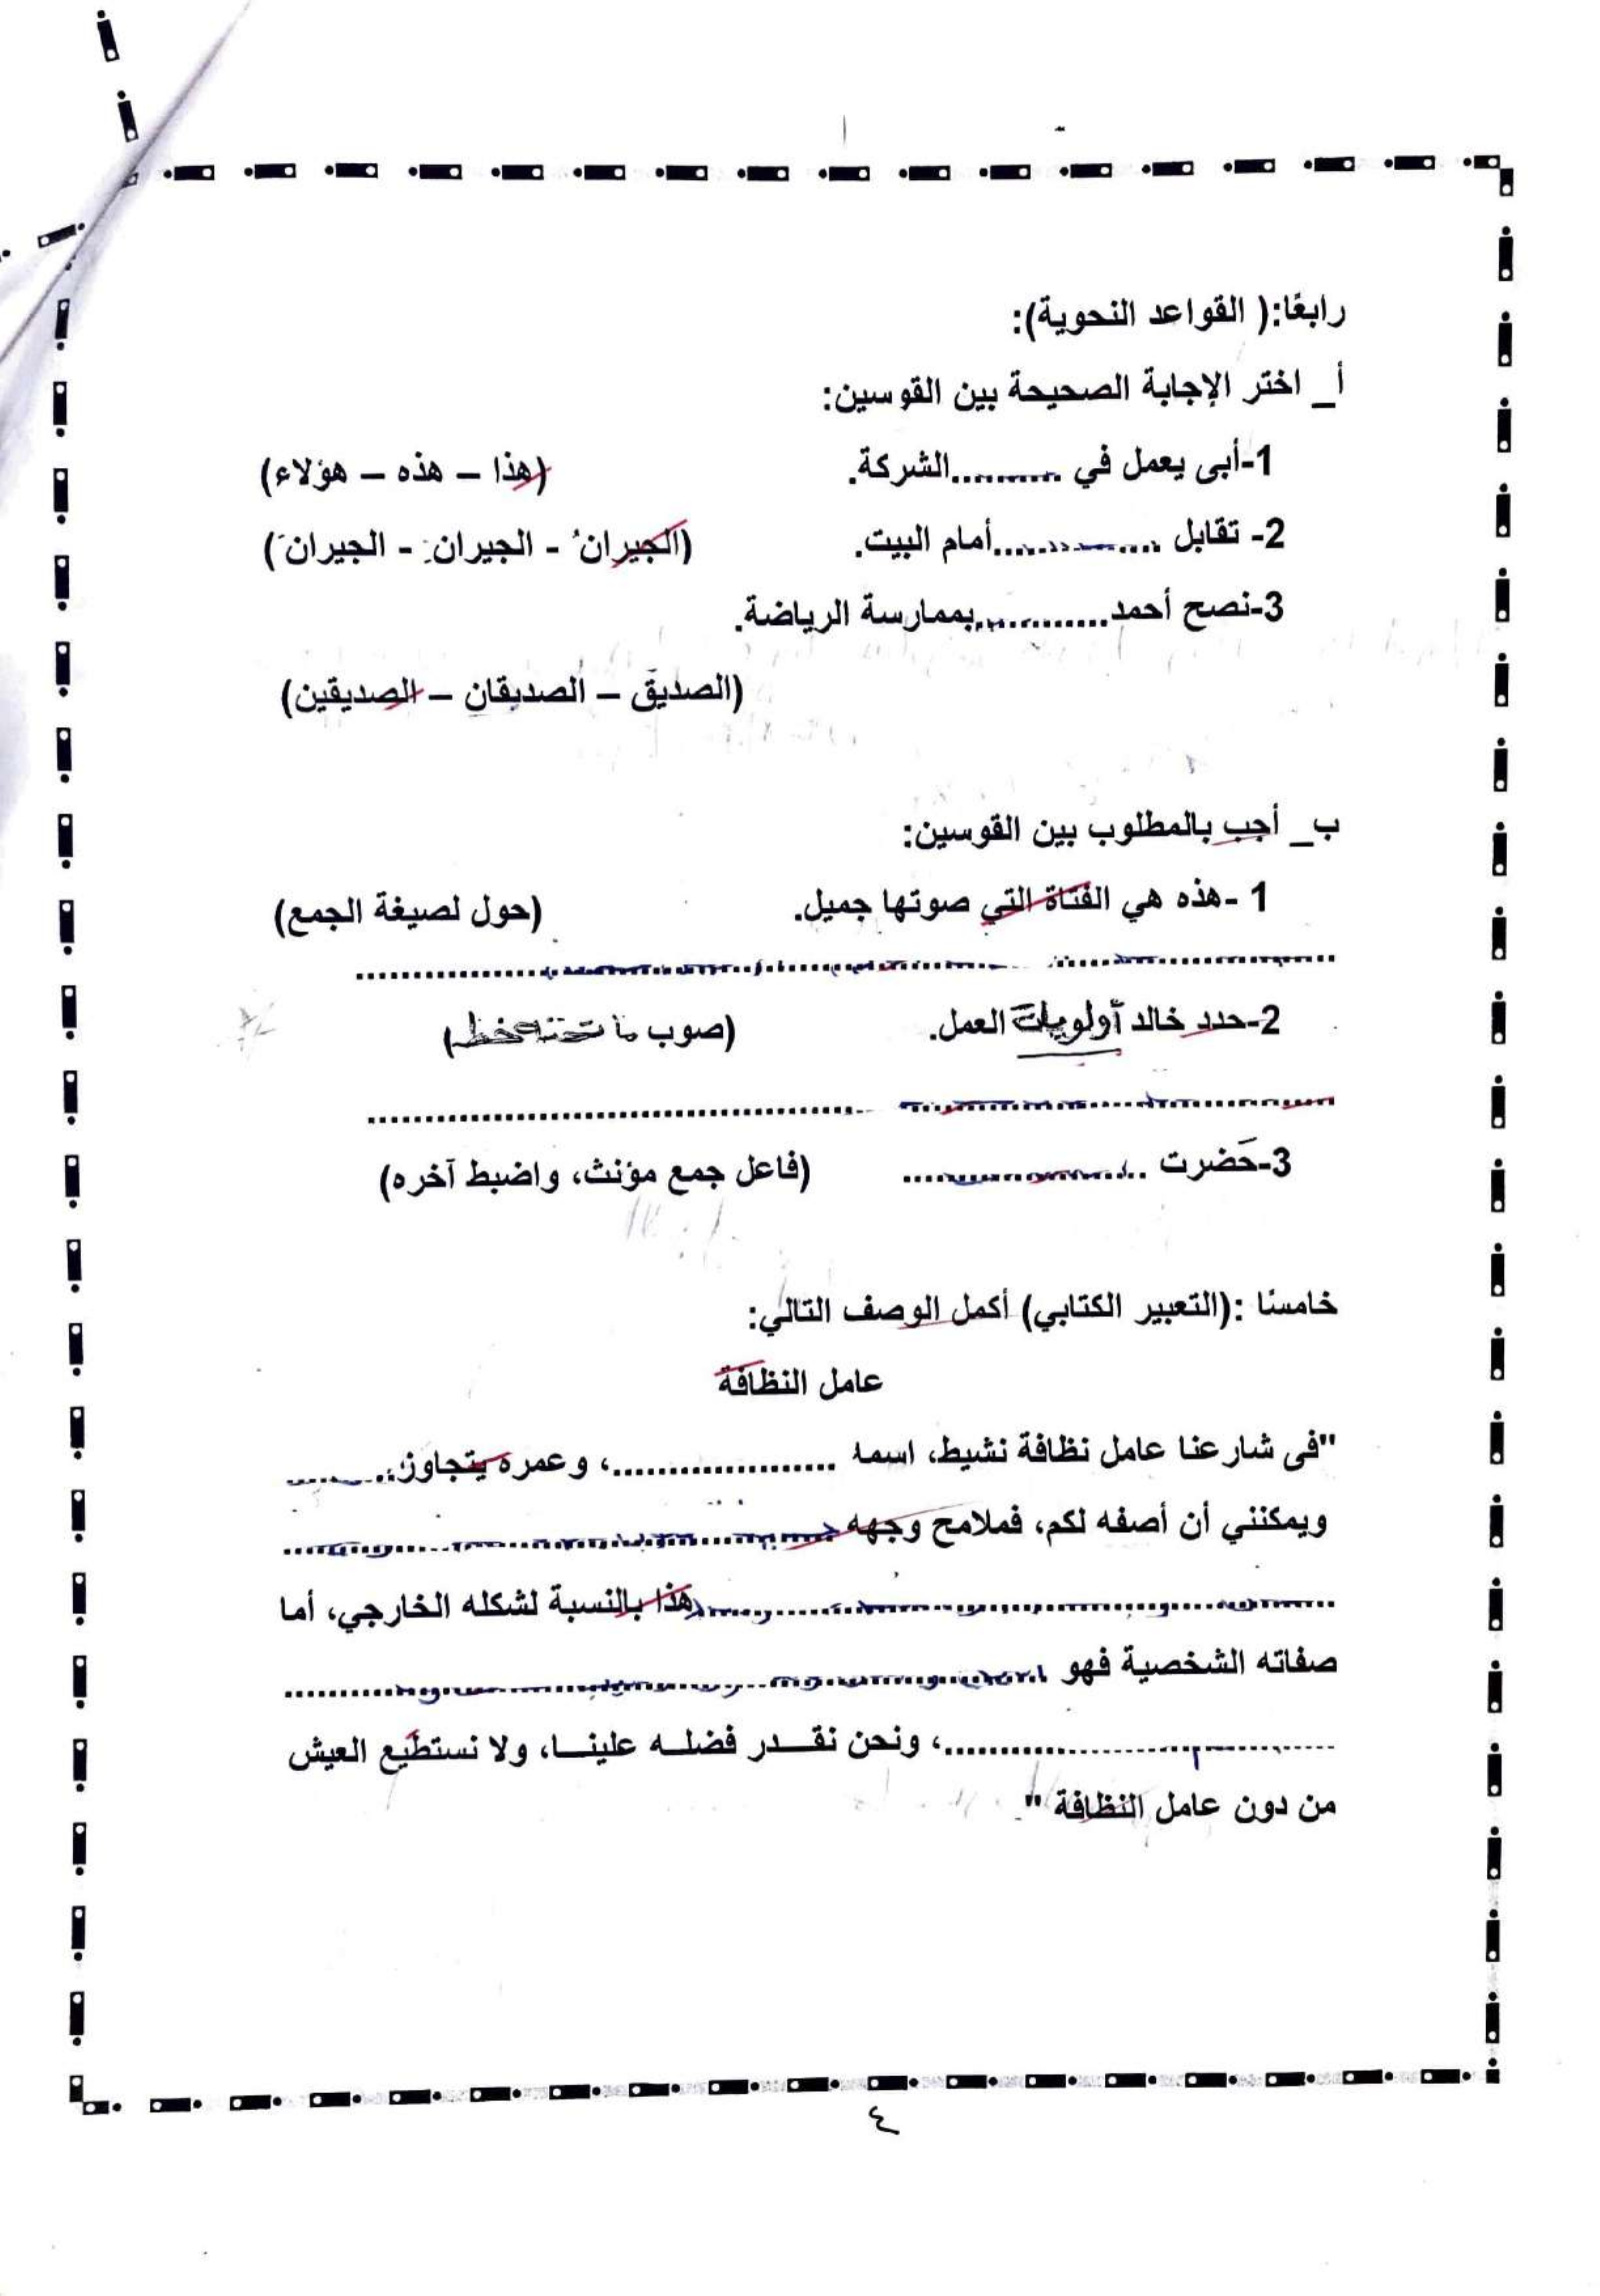 رابعًا:( القواعد النحوية):
أ_ اختر الإجابة الصحيحة بين القوسين:
1-أبى يعمل في ............الشركة. (هذا – هذه – هؤلاء)
2- تقابل ................أمام البيت. (الجيرانُ - الجيرانِ - الجيرانَ)
3-نصح أحمد................بممارسة الرياضة.
(الصديقَ – الصديقان – الصديقين)
ب_ أجب بالمطلوب بين القوسين:
1 -هذه هي الفتاة التي صوتها جميل. (حول لصيغة الجمع)
2-حدد خالد أولويات العمل. (صوب ما تحته خط)
3-حَضرت .................... (فاعل جمع مؤنث، واضبط آخره)
خامسًا :(التعبير الكتابي) أكمل الوصف التالي:
عامل النظافة
"فى شارعنا عامل نظافة نشيط، اسمه ....................، وعمره يتجاوز..........
ويمكنني أن أصفه لكم، فملامح وجهه ..............................
..............................هذا بالنسبة لشكله الخارجي، أما
صفاته الشخصية فهو ..............................
..............................، ونحن نقدر فضله علينا، ولا نستطيع العيش
من دون عامل النظافة "
٤